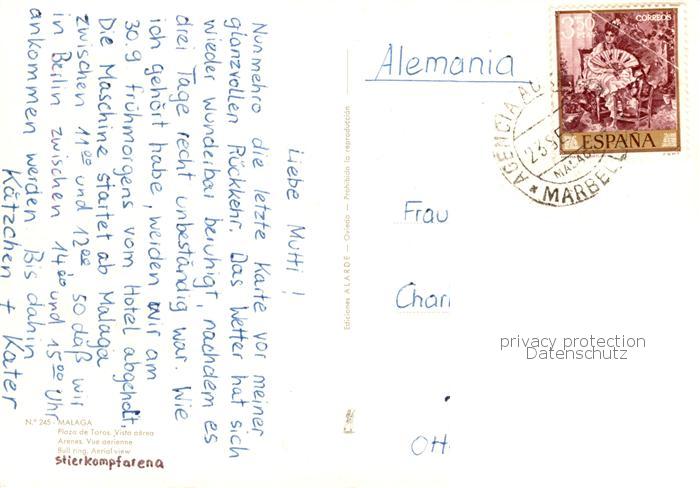 Liebe Mutti!
Nunmehro die letzte Karte vor meiner
glanzvollen Rückkehr. Das Wetter hat sich
wieder wunderbar beruhigt, nachdem es
drei Tage recht unbeständig war. Wie
ich gehört habe, werden wir am
30.9 frühmorgens vom Hotel abgeholt.
Die Maschine startet ab Malaga
zwischen 11⁰⁰ und 12⁰⁰ sodaß wir
in Berlin zwischen 14⁰⁰ und 15⁰⁰ Uhr
ankommen werden. Bis dahin
Kätzchen + Kater
N.° 245 - MALAGA
Plaza de Toros. Vista aérea
Arenes. Vue aerienne
Bull ring. Aerial view
Stierkampfarena
Ediciones ALARDE — Oviedo — Prohibida la reproducción
Alemania
3'50
PTAS
CORREOS
ESPAÑA
MALAGA
* MARBEL
Frau
Charl
Ott
privacy protection
Datenschutz